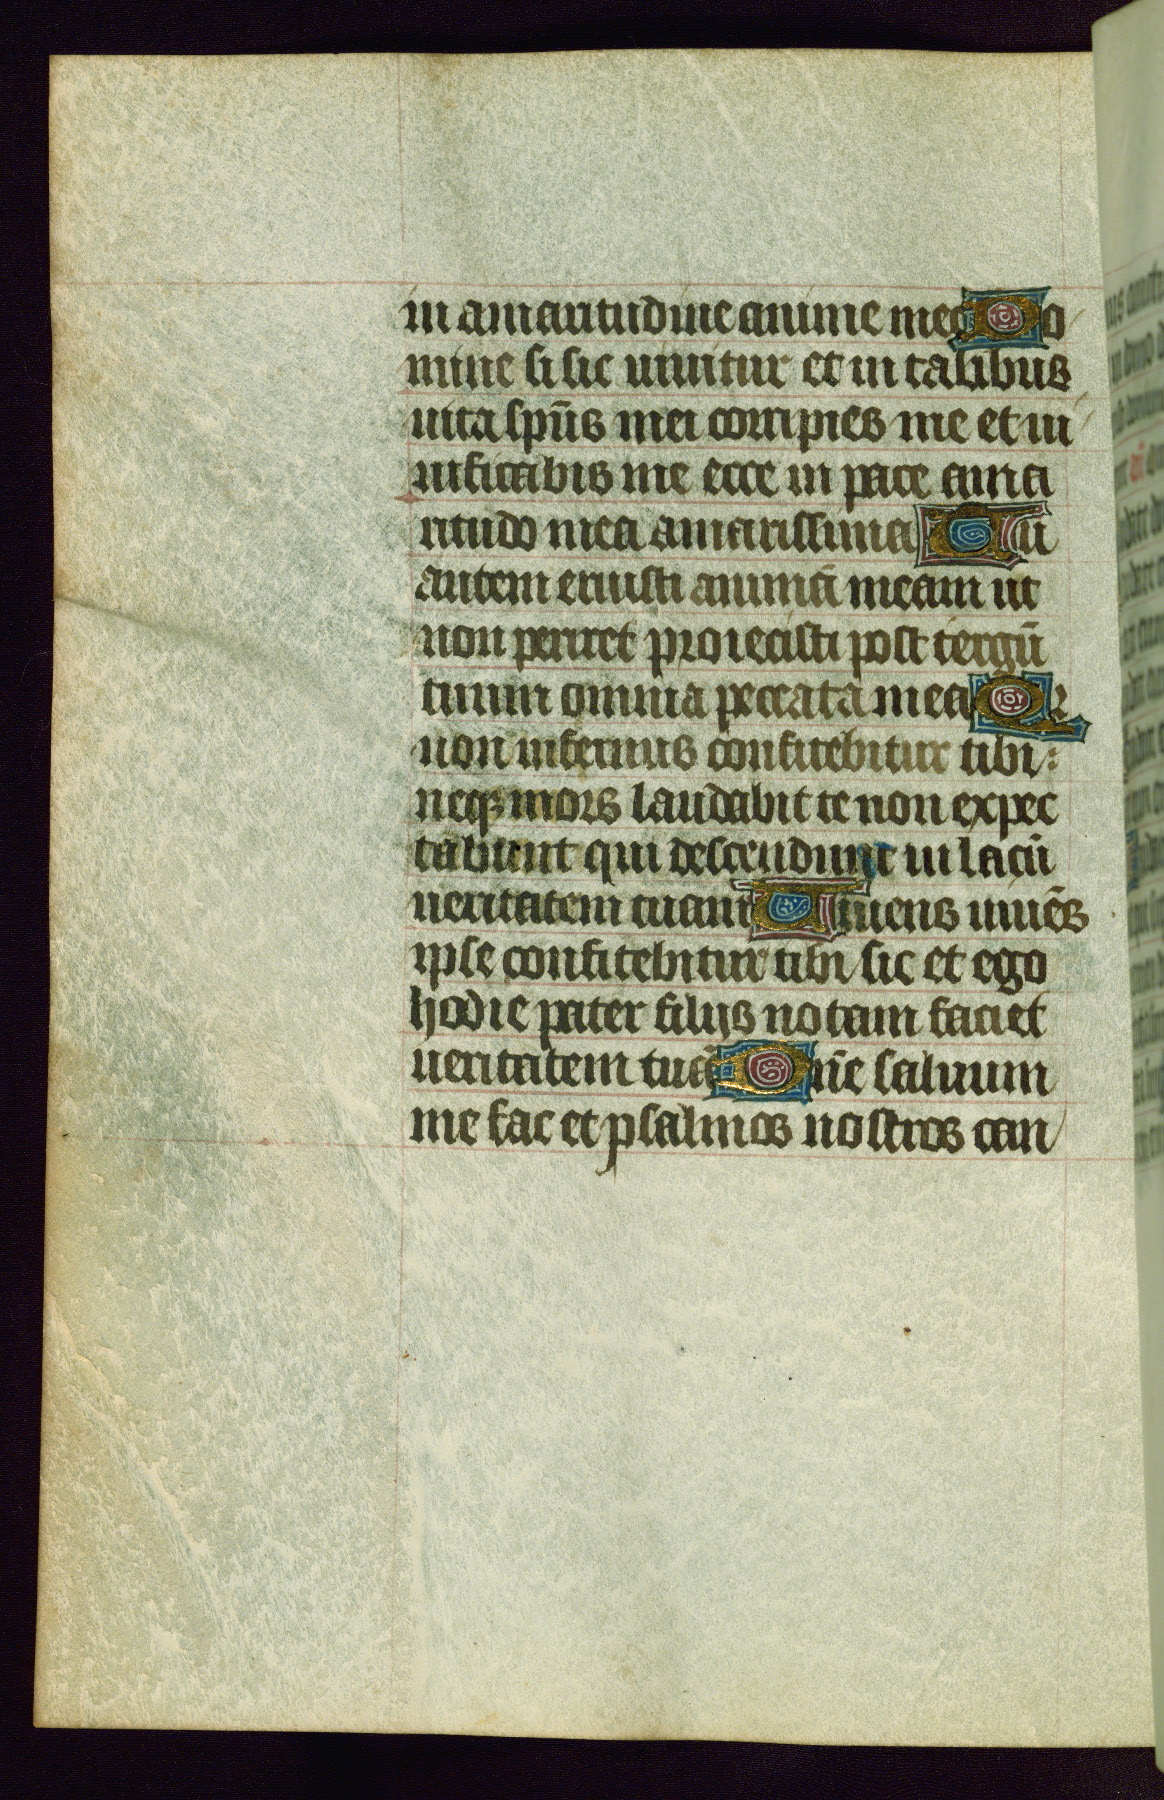 in amaritudine anime mee Do
mine si sic uiuitur et in talibus
uita sp̄us mei corripies me et ui
uificabis me ecce in pace ama
ritudo mea amarissima Tu
autem eruisti animā meam ut
non periret proiecisti post tergū
tuum omnia peccata mea Qr
non infernus confitebitur tibi
neqꝫ mors laudabit te non expec
tabunt qui descendunt in lacū
ueritatem tuam Viuens uiuēs
ipse confitebitur tibi sic et ego
hodie pater filijs notam faciet
ueritatem tuā Dn̄e saluum
me fac et psalmos nostros can